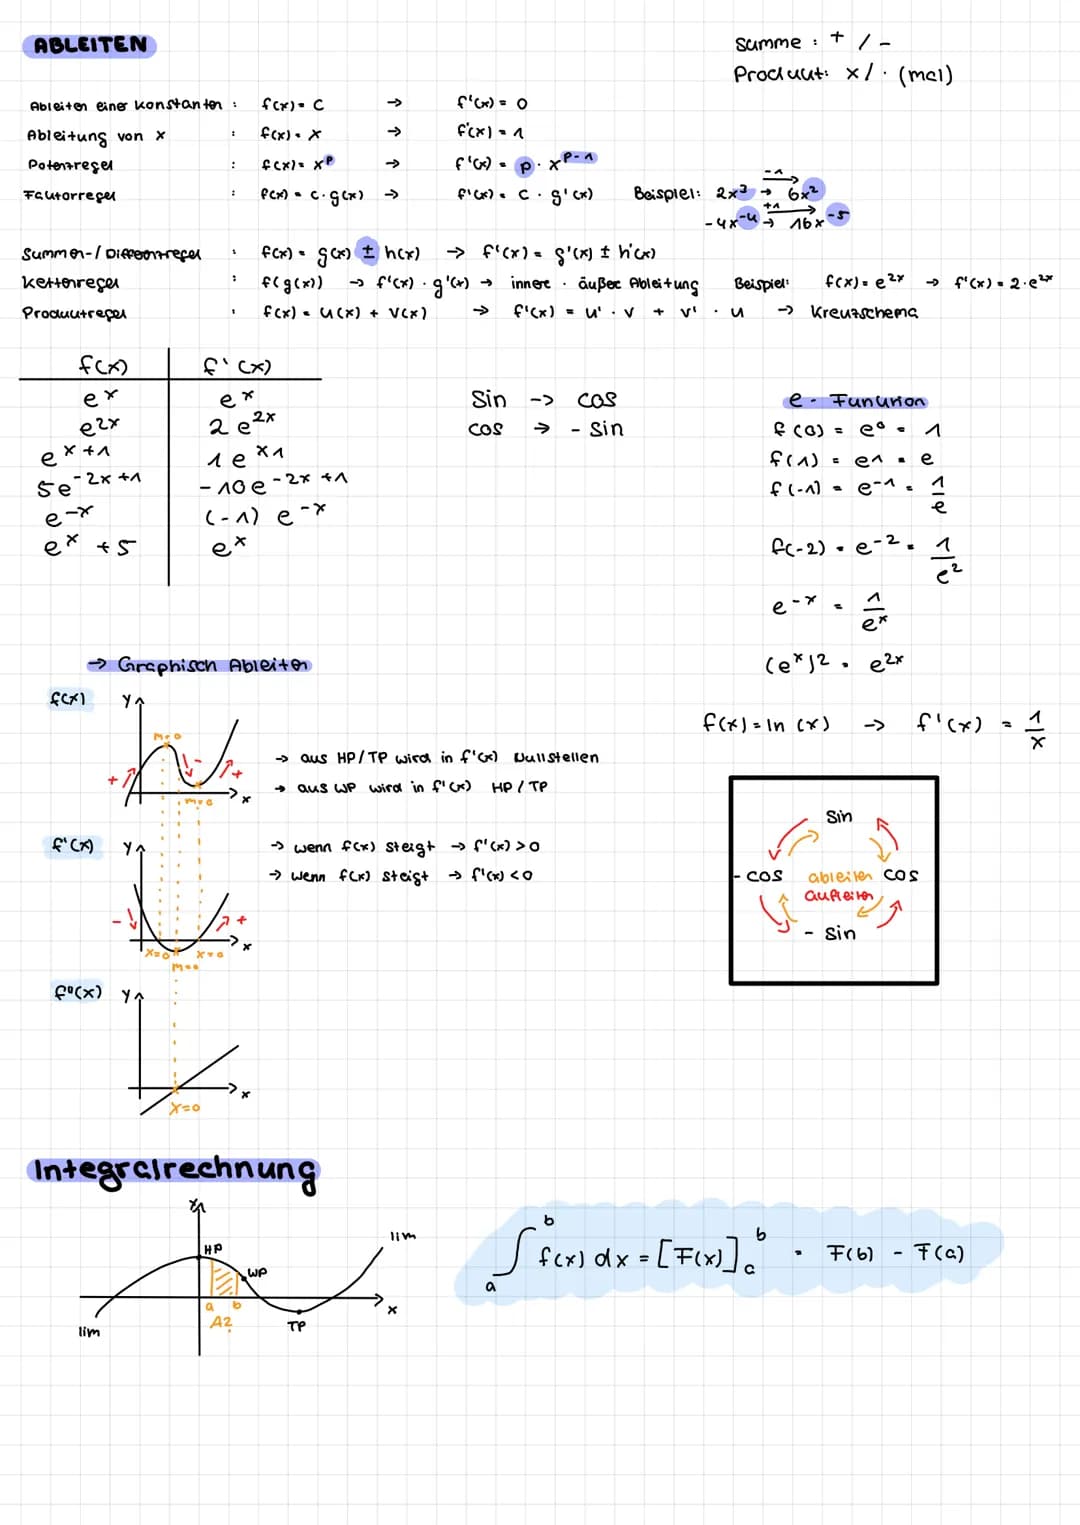 ABLEITEN
Summe : + / -
Produkt: x / · (mal)
Ableiten einer Konstanten : f(x) = c → f'(x) = 0
Ableitung von x : f(x) = x → f'(x) = 1
Potenzregel : f(x) = x^p → f'(x) = p · x^(p-1)
Faktorregel : f(x) = c · g(x) → f'(x) = c · g'(x) Beispiel: 2x^3 → 6x^2
-1
-4x^-4 → 16x^-5
+1
Summen-/Differenzregel : f(x) = g(x) ± h(x) → f'(x) = g'(x) ± h'(x)
Kettenregel : f(g(x)) → f'(x) · g'(x) → innere · äußere Ableitung Beispiel: f(x) = e^2x → f'(x) = 2·e^2x
Produktregel : f(x) = u(x) + v(x) → f'(x) = u' · v + v' · u → Kreuzschema
f(x) f'(x)
e^x e^x
e^2x 2e^2x
e^x+1 1e^x1
5e^-2x+1 -10e^-2x+1
e^-x (-1) e^-x
e^x + 5 e^x
Sin -> cos
cos → - sin
e - Funktion
f(0) = e^0 = 1
f(1) = e^1 = e
f(-1) = e^-1 = 1/e
f(-2) = e^-2 = 1/e^2
e^-x = 1/e^x
(e^x)^2 = e^2x
f(x) = ln(x) → f'(x) = 1/x
→ Graphisch Ableiten
f(x) y
m=0
+ - +
m=0 x
→ aus HP/TP wird in f'(x) Nullstellen
→ aus WP wird in f'(x) HP/TP
f'(x) y
→ wenn f(x) steigt → f'(x) > 0
→ wenn f(x) steigt → f'(x) < 0
- +
x=0 x=0 x
m=0
f''(x) y
x
x=0
Sin
- cos ableiten cos
aufleiten
- sin
Integralrechnung
HP WP lim
a b x
lim A? TP
∫ a b f(x) dx = [F(x)] a b = F(b) - F(a)